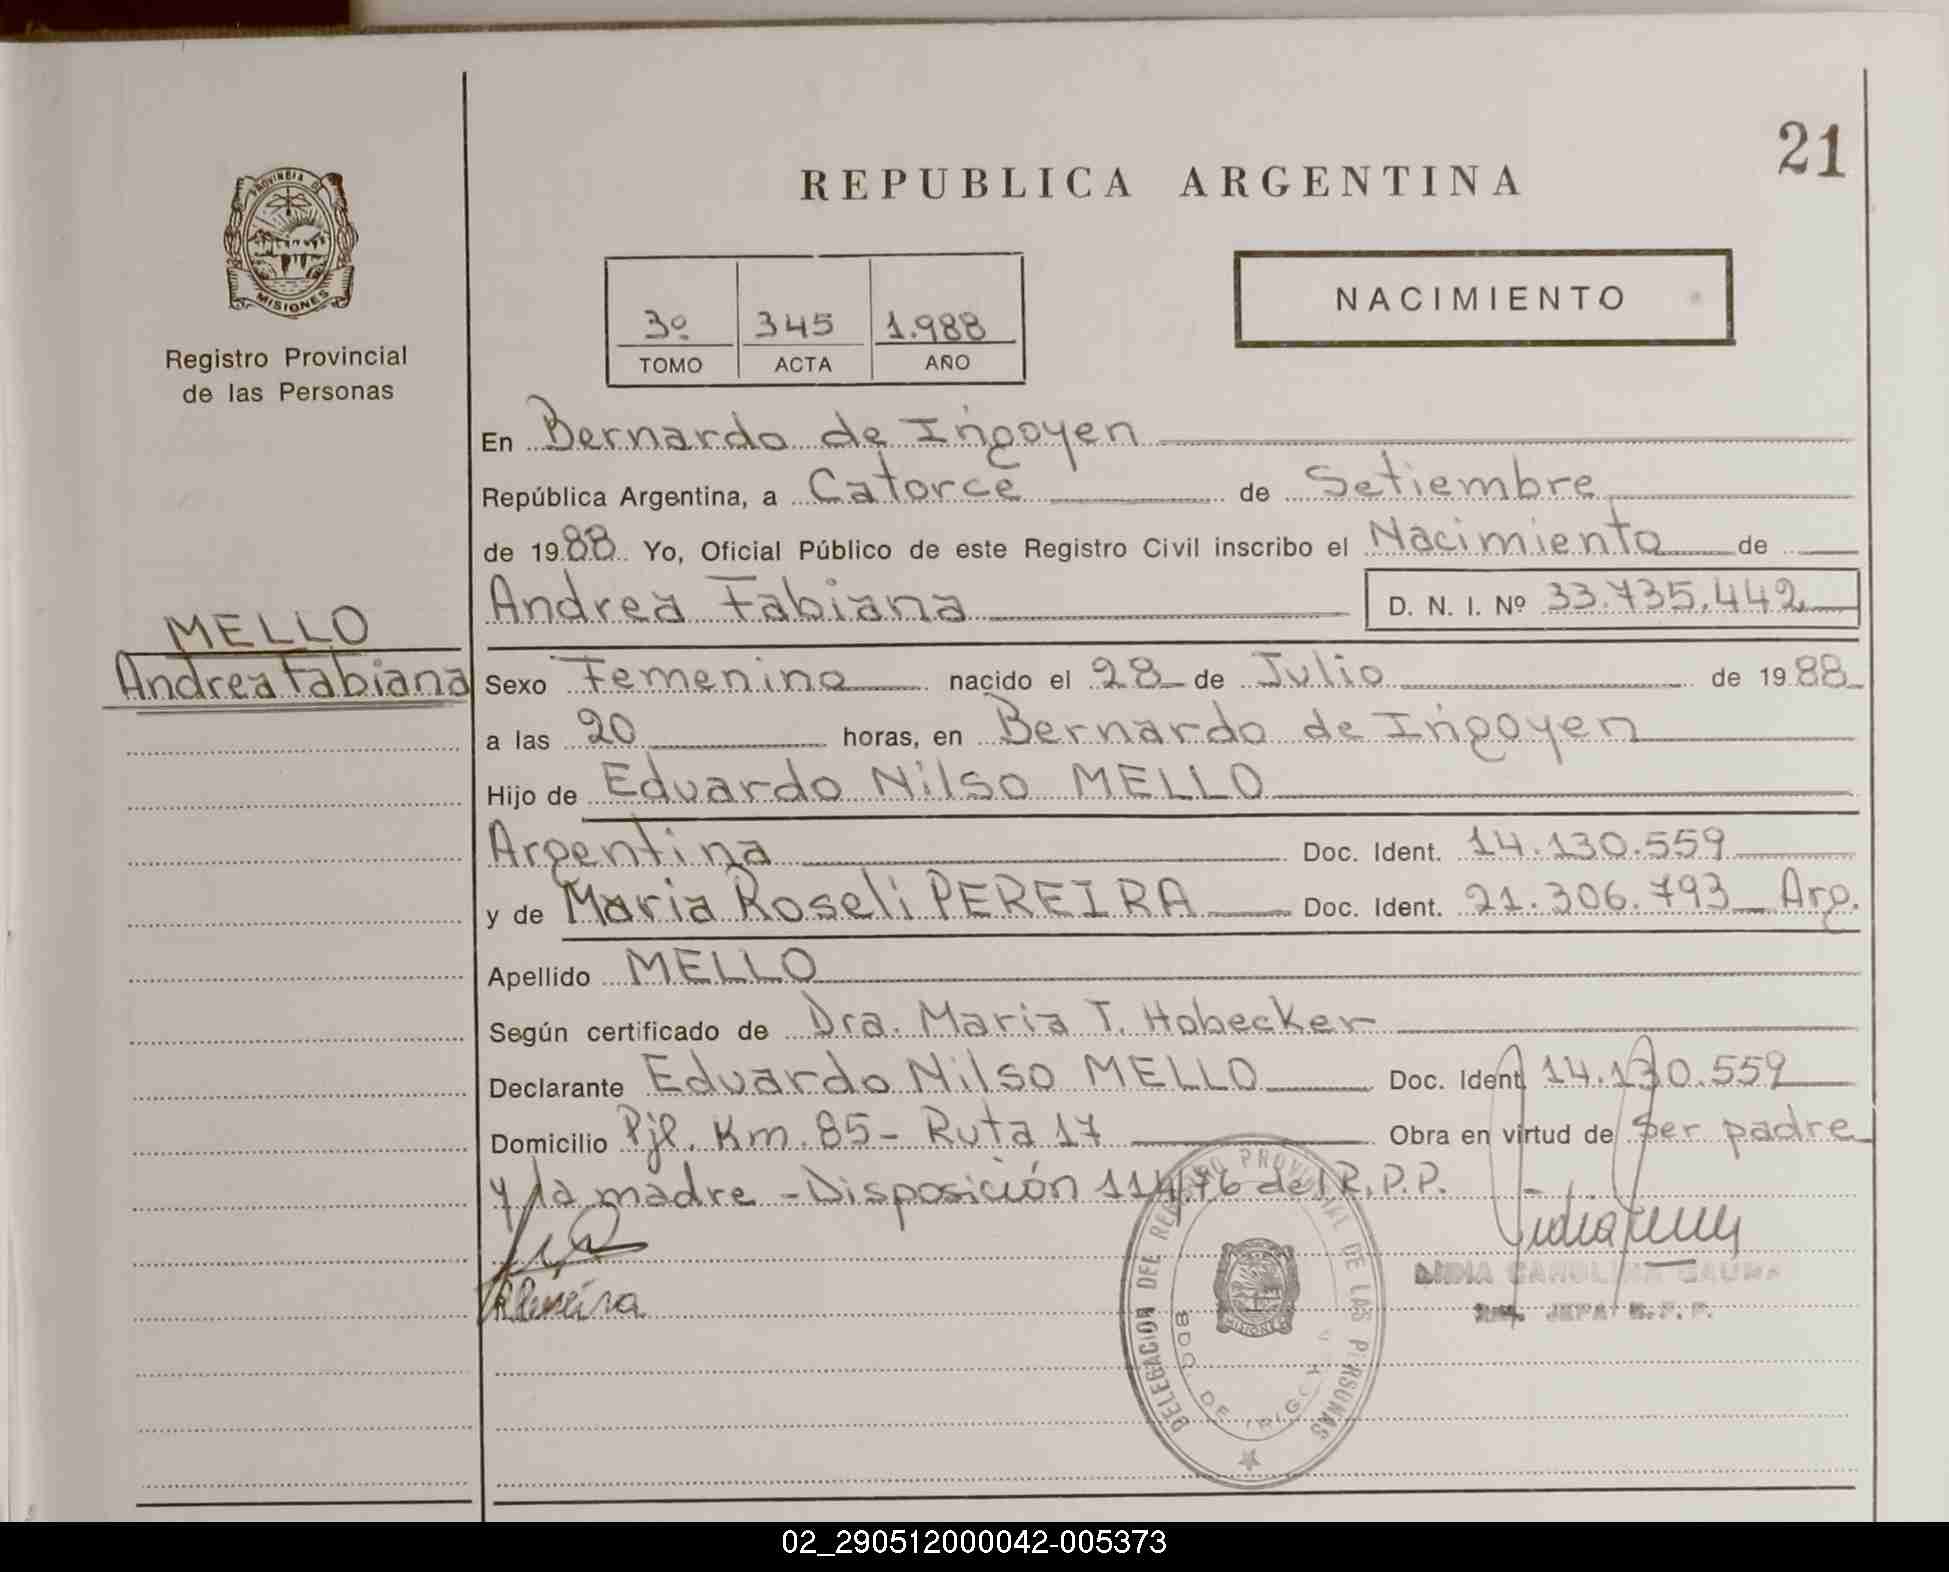 21
REPUBLICA ARGENTINA
PROVINCIA DE
MISIONES
Registro Provincial
de las Personas
3º 345 1.988
TOMO ACTA AÑO
NACIMIENTO
En Bernardo de Irigoyen
República Argentina, a Catorce de Setiembre
de 1988 Yo, Oficial Público de este Registro Civil inscribo el Nacimiento de
Andrea Fabiana D. N. I. Nº 33.735.442
MELLO
Andrea Fabiana
Sexo Femenino nacido el 28 de Julio de 1988
a las 20 horas, en Bernardo de Irigoyen
Hijo de Eduardo Nilso MELLO
Argentina Doc. Ident. 14.130.559
y de Maria Roseli PEREIRA Doc. Ident. 21.306.793 Arg.
Apellido MELLO
Según certificado de Dra. Maria T. Hobecker
Declarante Eduardo Nilso MELLO Doc. Ident. 14.130.559
Domicilio Pje. Km. 85 - Ruta 17 Obra en virtud de ser padre
y la madre - Disposición 114/76 del R.P.P. -
DELEGACION DEL REGISTRO PROVINCIAL DE LAS PERSONAS
BDO. DE IRIGOYEN
MISIONES
JEFA R.P.P.
02_290512000042-005373